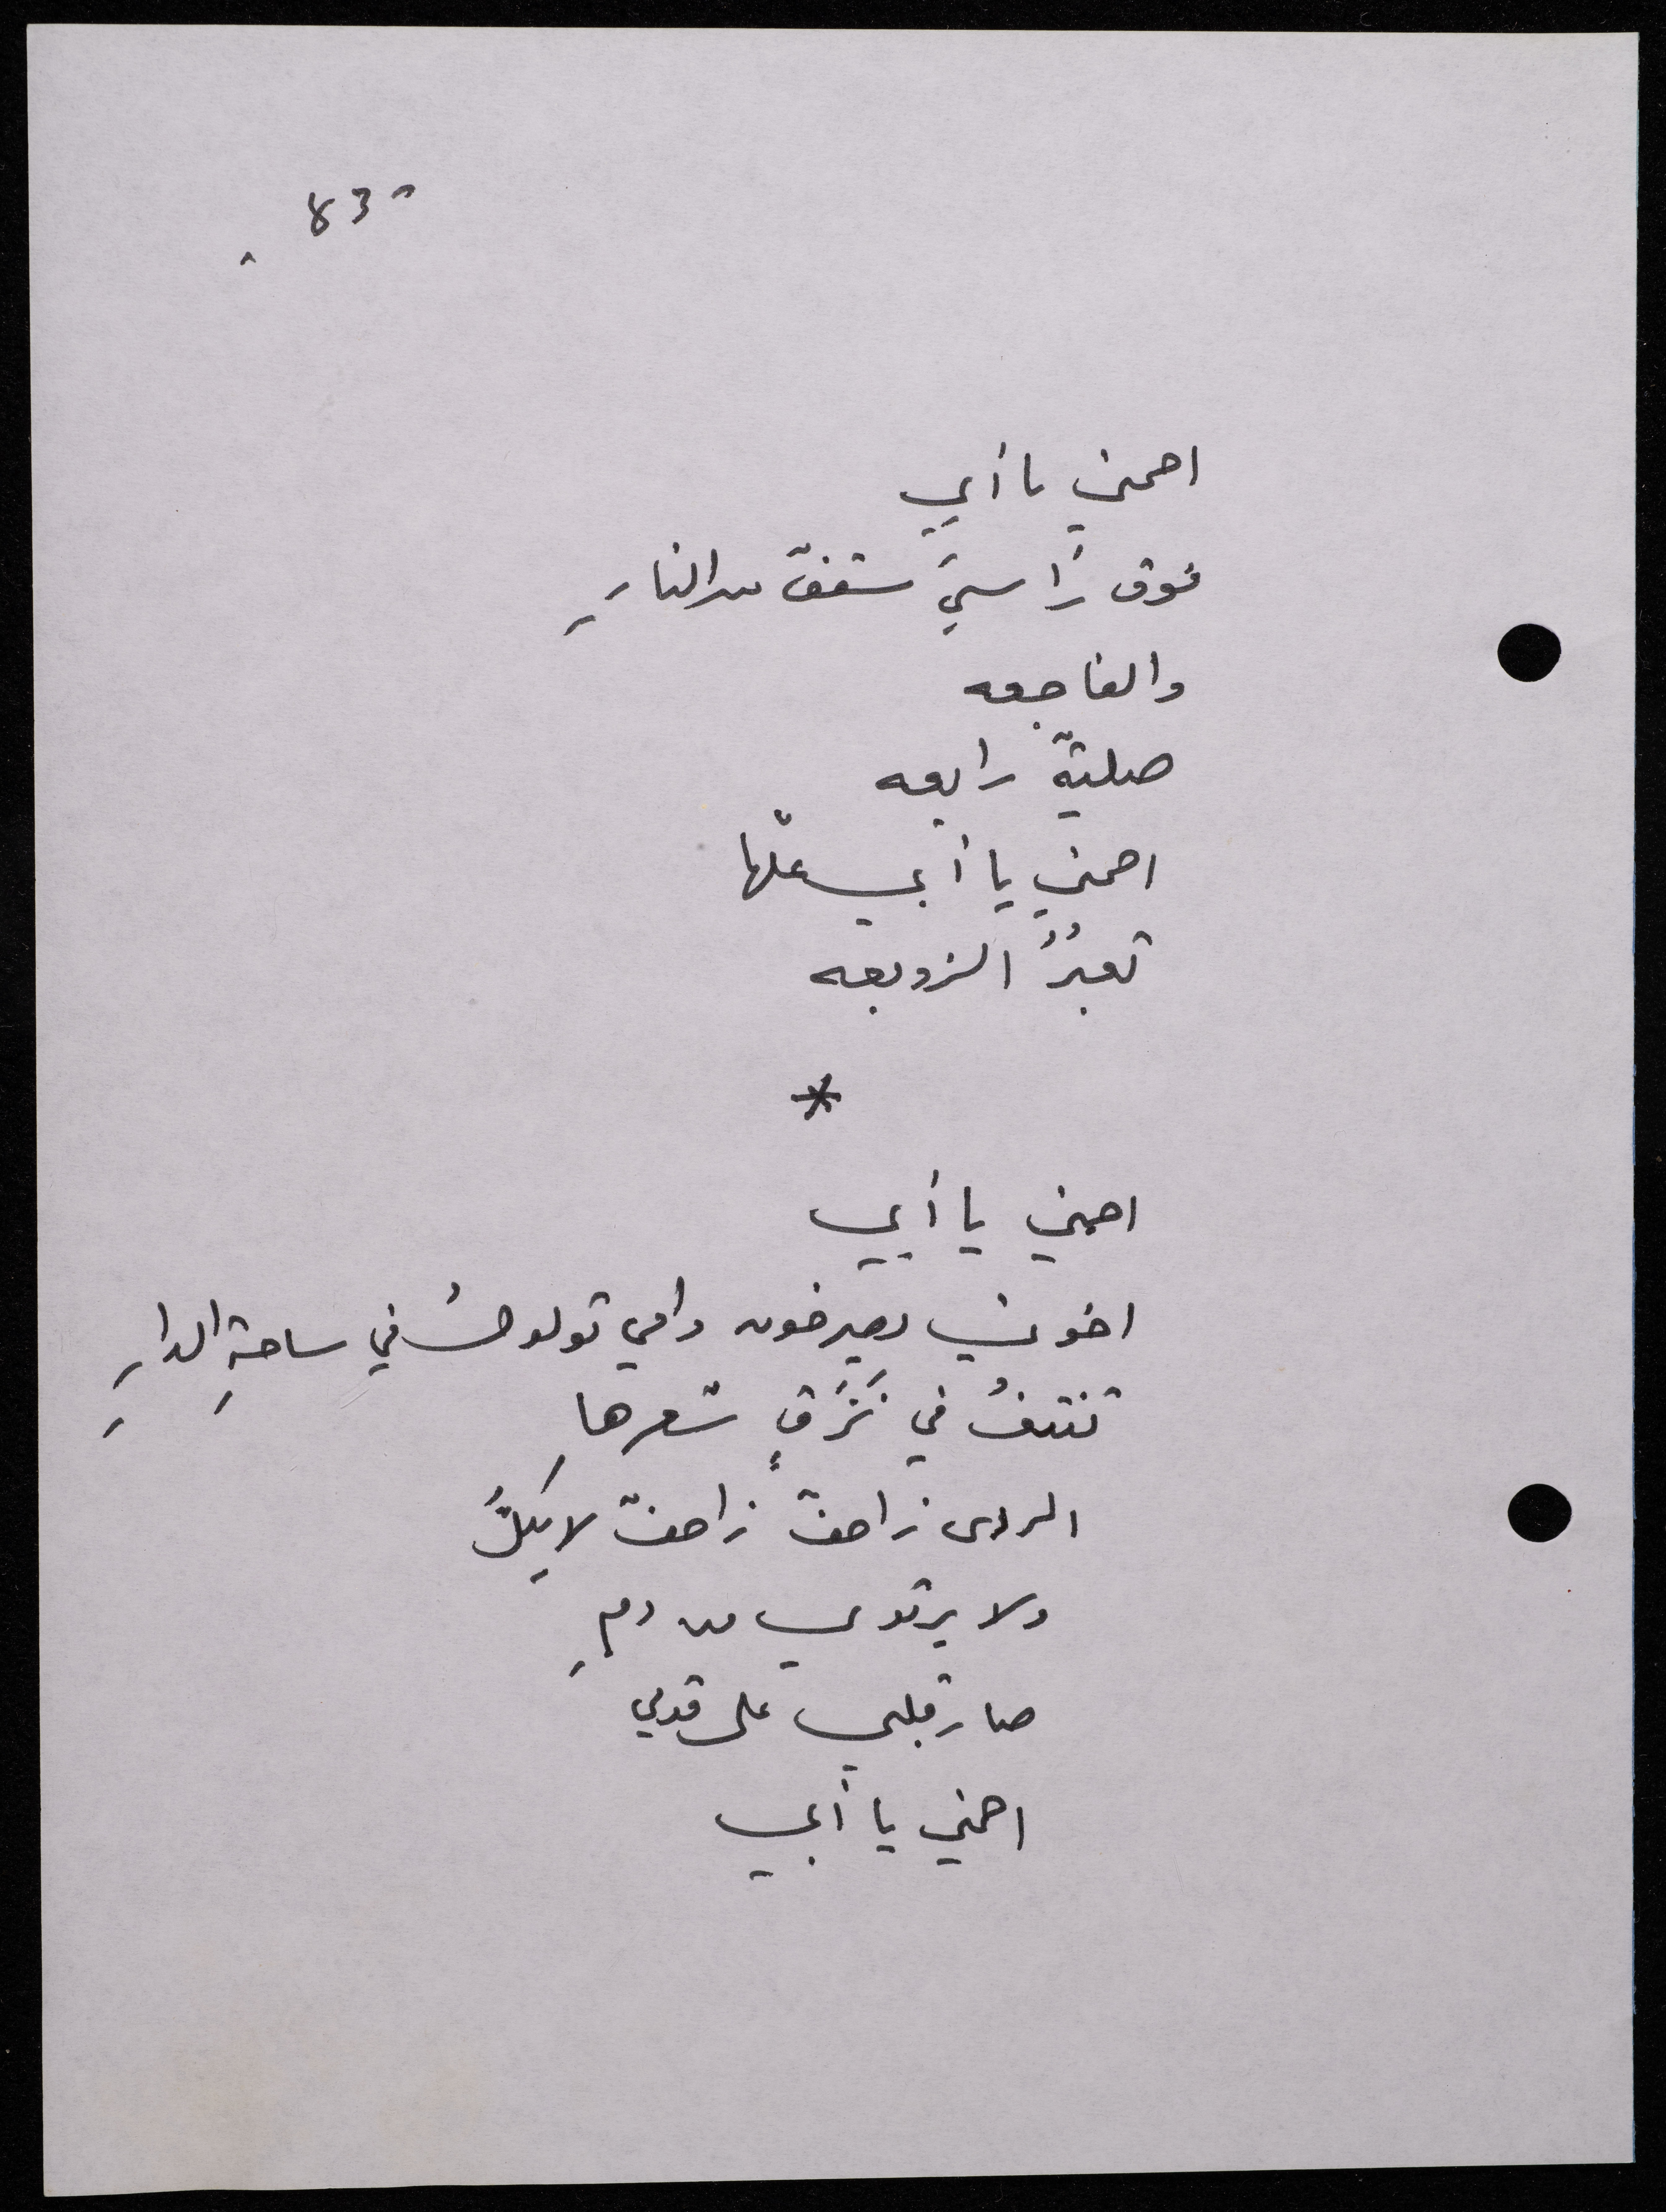 83
احمني يا أبي
فوق رأسيَ سقفٌ من النارِ
والفاجعه
صليةٌ رابعه
احمني يا أبي علّها
تعبُرُ الزوبعه
*
احمني يا أبي
اخوتي يصرخون وامي تولولُ في ساحةِ الدارِ
تنتفُ في نَزَقٍ شعرها
الردى زاحفٌ زاحفٌ لا يكلُّ
ولا يرتوي من دمِ
صار قلبي على قدمي
احمني يا أبي